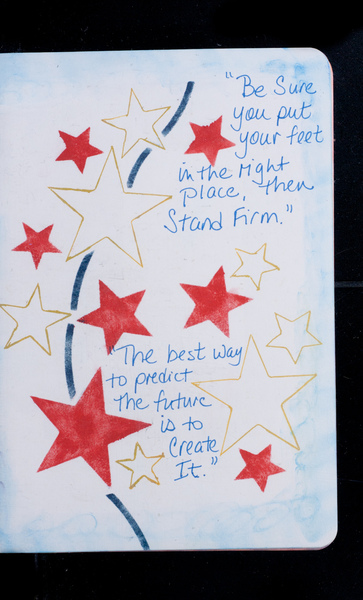 "Be Sure
you put
your feet
in the right
place, then
Stand Firm."
"The best way
to predict
the future
is to
Create
It."